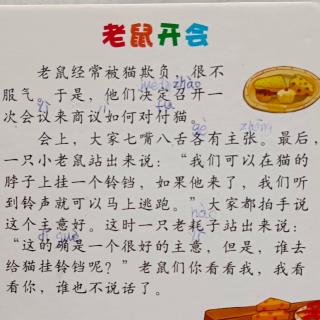 老鼠开会
老鼠经常被猫欺负，很不
服气。于是，他们决定召开一
次会议来商议如何对付猫。
会上，大家七嘴八舌各有主张。最后，
一只小老鼠站出来说：“我们可以在猫的
脖子上挂一个铃铛，如果他来了，我们听
到铃声就可以马上逃跑。”大家都拍手说
这个主意好。这时一只老耗子站出来说：
“这的确是一个很好的主意，但是，谁去
给猫挂铃铛呢？”老鼠们你看看我，我看
看你，谁也不说话了。